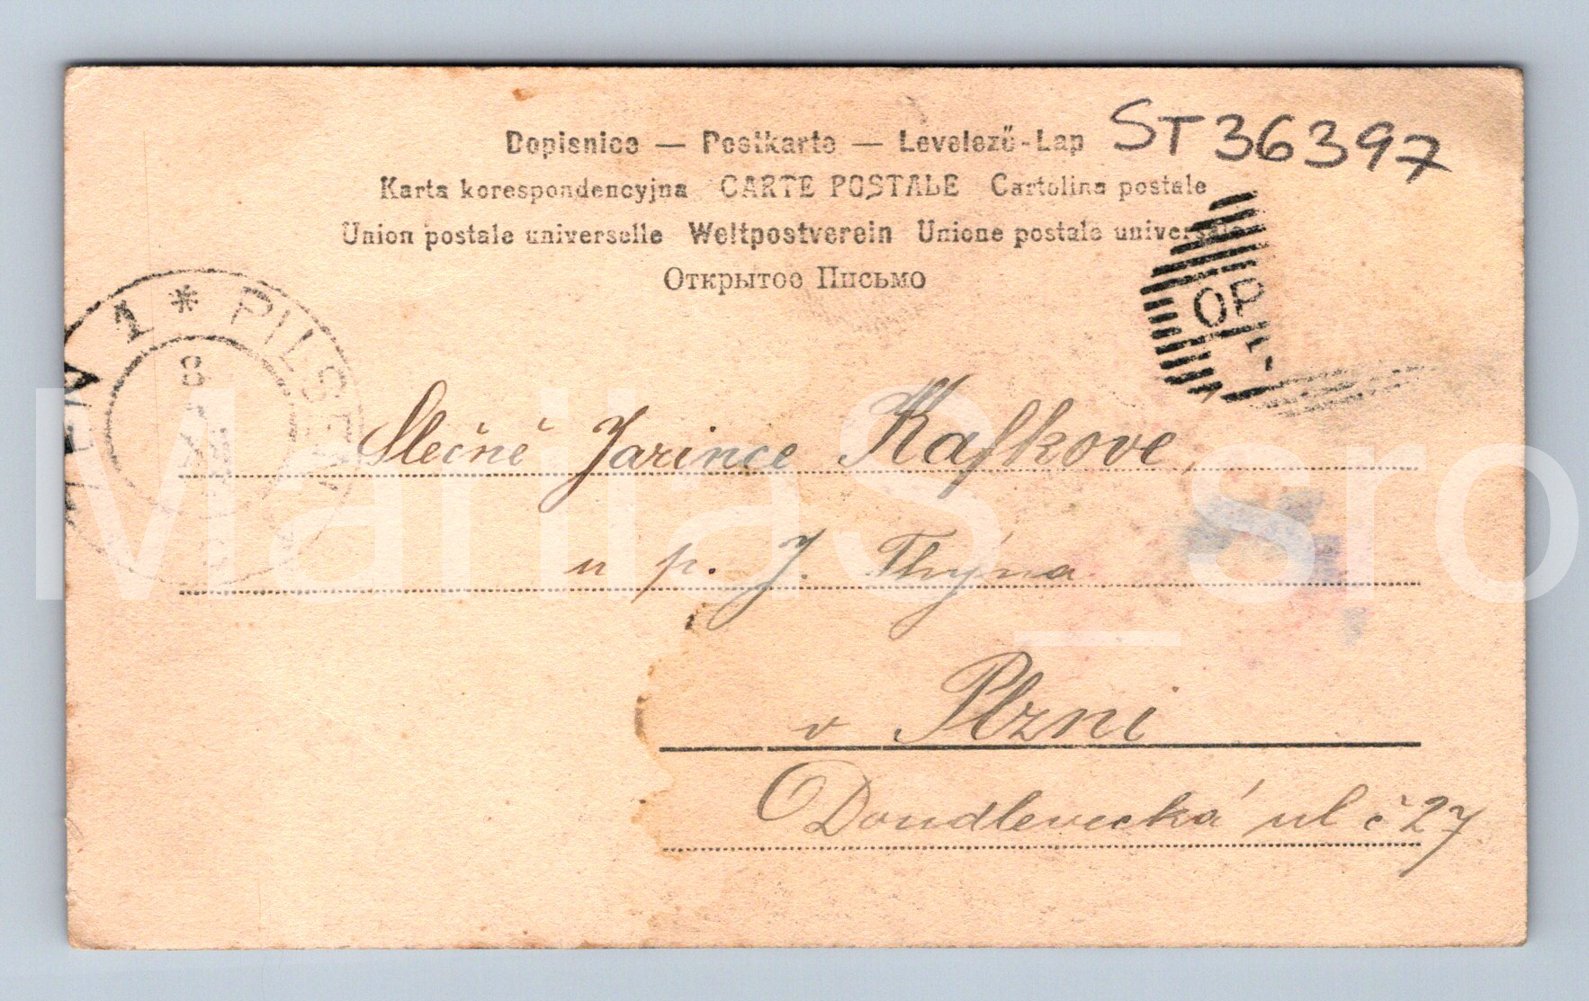 Dopisnice — Postkarte — Levelező-Lap ST36397
Karta korespondencyjna CARTE POSTALE Cartolina postale
Union postale universelle Weltpostverein Unione postale universale
Открытое Письмо
1 * PILSEN
8
OP
Slečně Jarince Kafkove,
u p. J. Thýna
v Plzni
Doudlevecká ul č 27
MariaS_sro